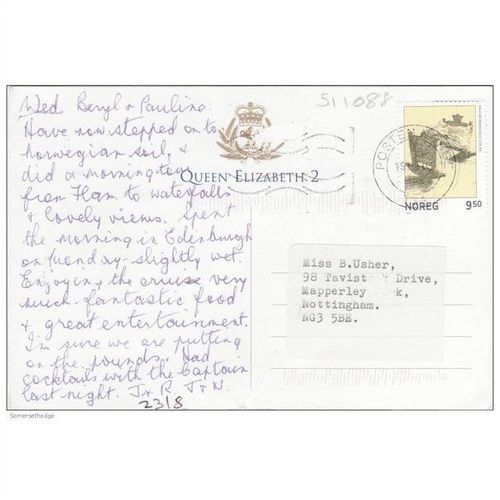 Wed Beryl & Pauline.
Have now stepped on to
norwegian soil, &
did a morning tour
from Flam to waterfalls
& lovely views. Spent
the morning in Edenburgh
on Monday - slightly wet.
Enjoying the cruise very
much - fantastic food
& great entertainment.
I'm sure we are putting
on the pounds. Had
cocktails with the Captain
last night. J & R J & N.
2318
QUEEN ELIZABETH 2
511088
POSTE
NOREG 9.50
Miss B.Usher,
98 Tavistock Drive,
Mapperley k,
Nottingham.
NG3 5BE.
Somersethedge